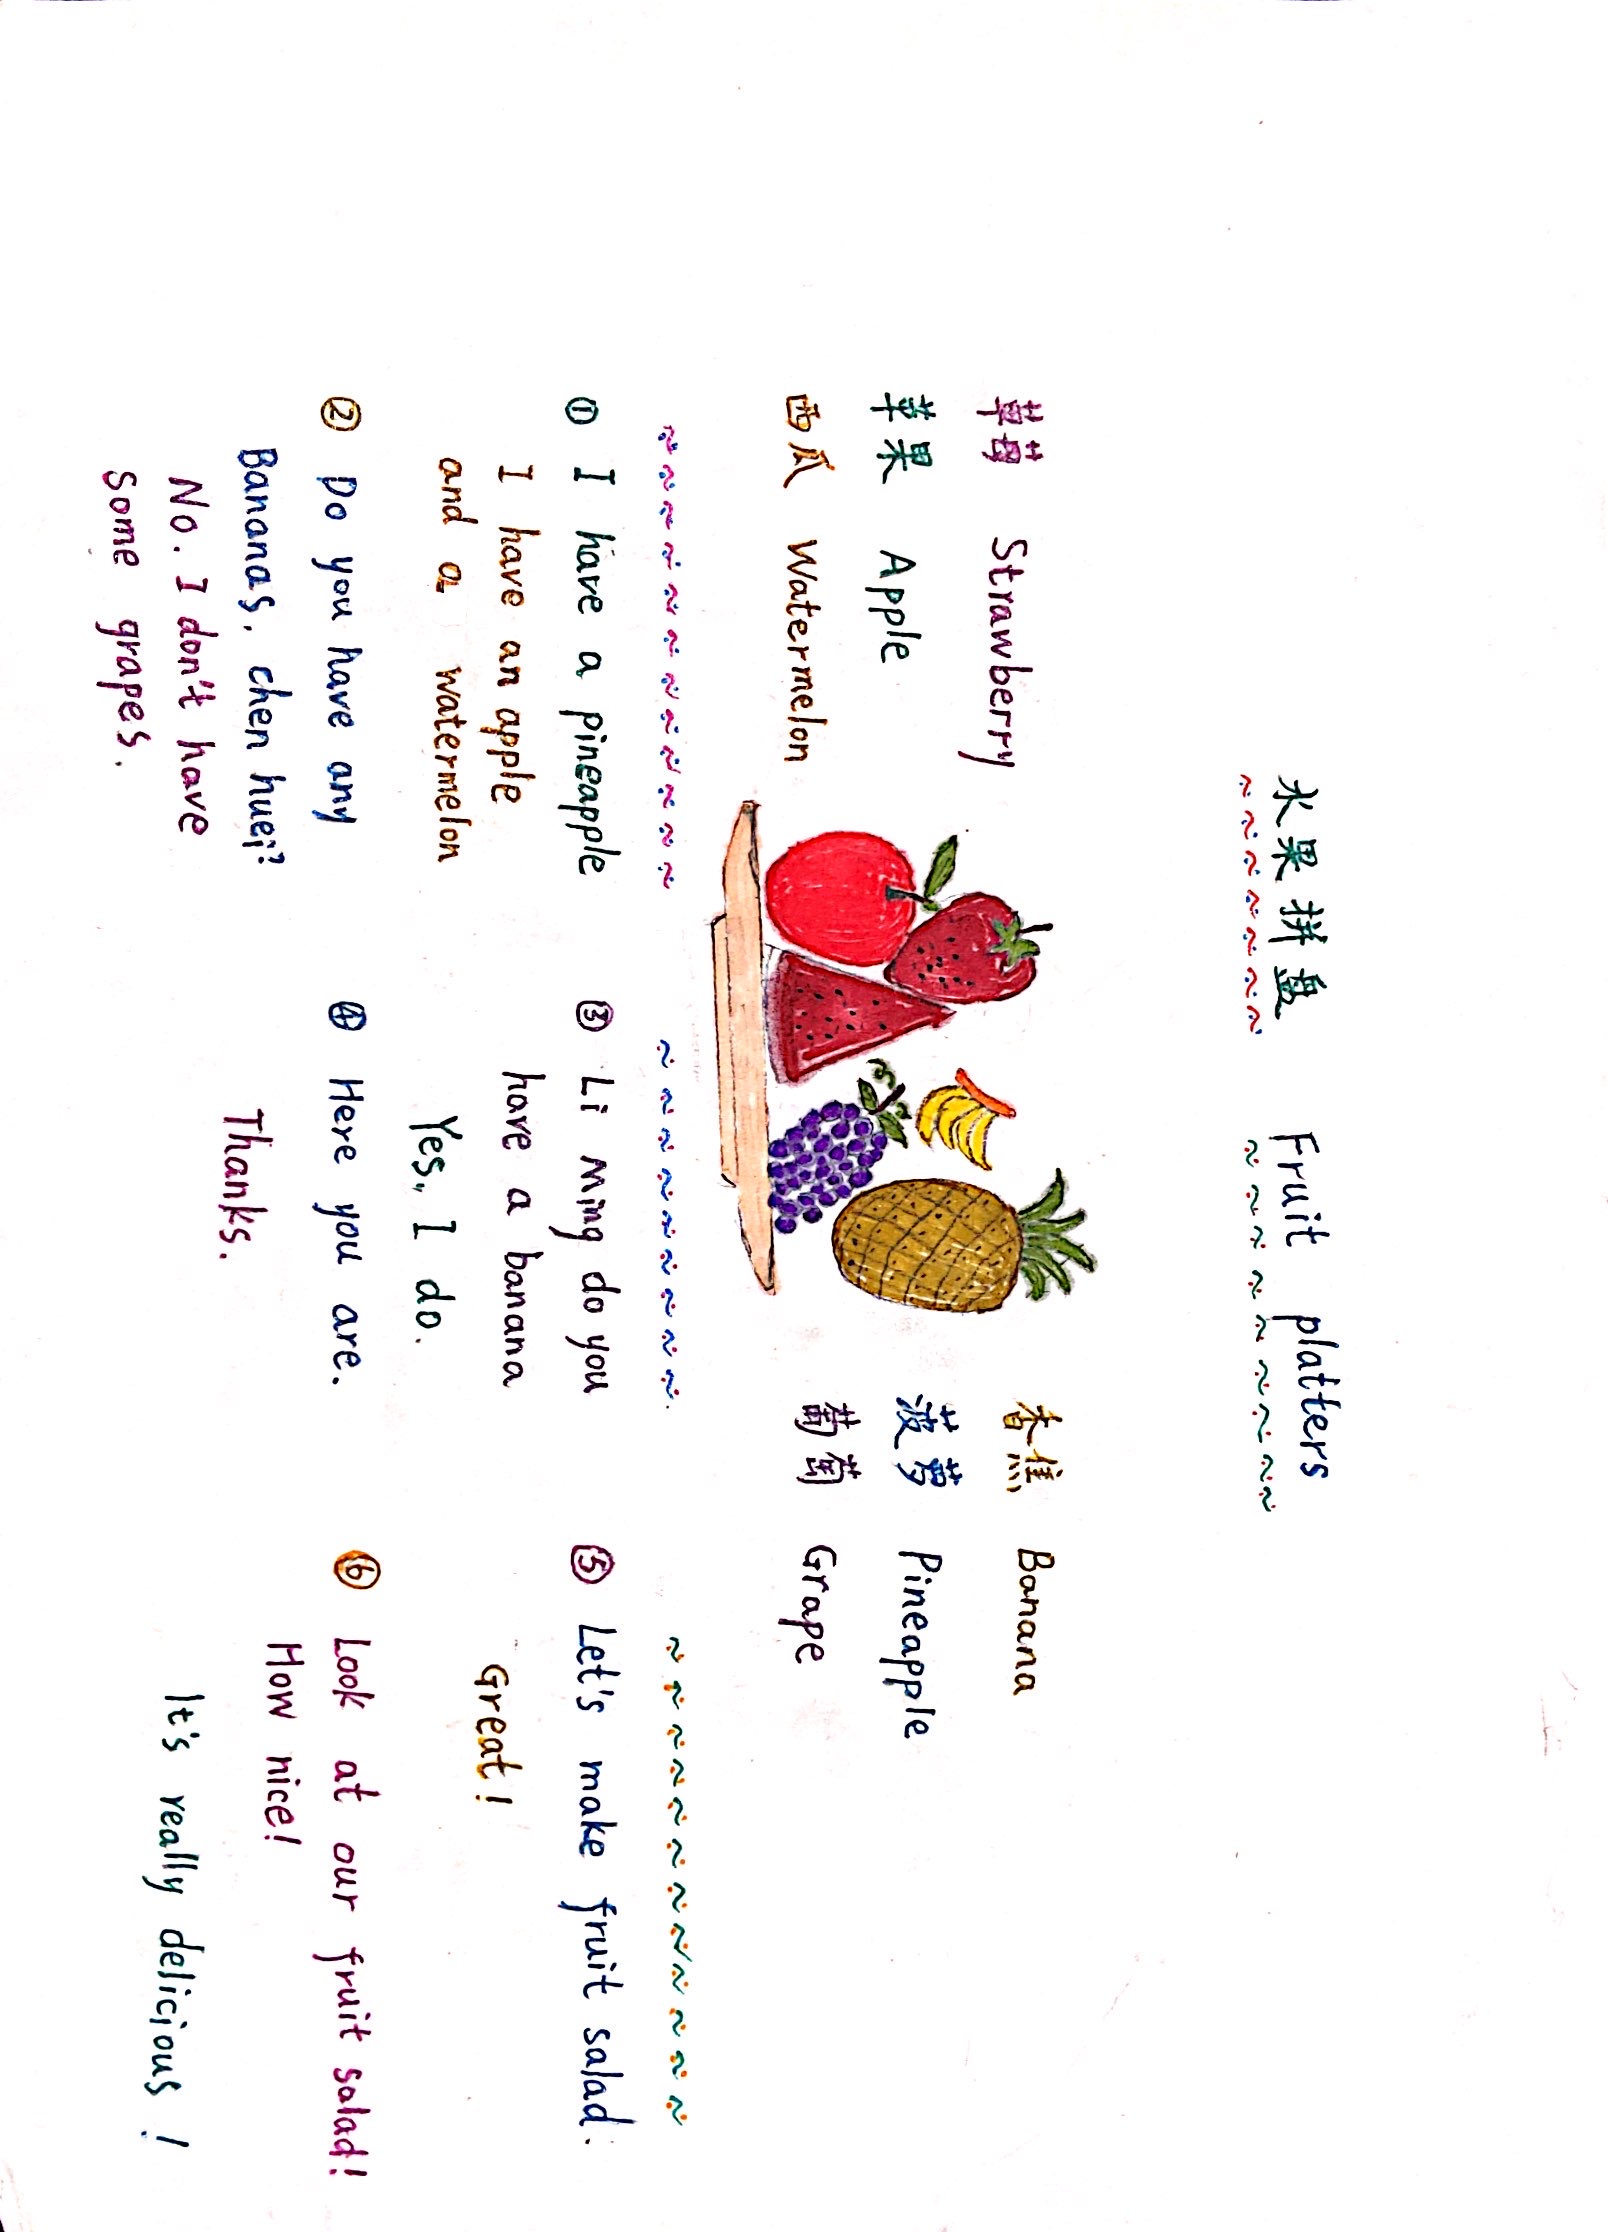 水果拼盘 Fruit platters
草莓 Strawberry
苹果 Apple
西瓜 Watermelon
香焦 Banana
菠萝 Pineapple
葡萄 Grape
① I have a pineapple
I have an apple
and a watermelon
② Do you have any
Bananas, chen huei?
No. I don't have
some grapes.
③ Li Ming do you
have a banana
Yes, I do.
④ Here you are.
Thanks.
⑤ Let's make fruit salad.
Great!
⑥ Look at our fruit salad!
How nice!
It's really delicious!